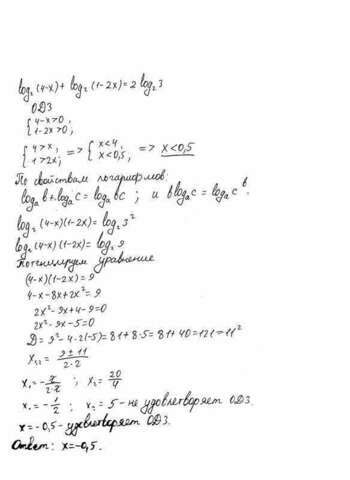 log₂(4-x)+log₂(1-2x)=2log₂3
ОДЗ
{4-x>0,
1-2x>0;
{4>x, => {x<4, => x<0,5
1>2x; x<0,5,
По свойствам логарифмов:
logₐb+logₐc=logₐbc; и blogₐc=logₐcᵇ.
log₂(4-x)(1-2x)=log₂3²
log₂(4-x)(1-2x)=log₂9
Потенцируем уравнение
(4-x)(1-2x)=9
4-x-8x+2x²=9
2x²-9x+4-9=0
2x²-9x-5=0
D=9²-4·2(-5)=81+8·5=81+40=121=11²
x₁,₂=(9±11)/(2·2)
x₁=-2/(2·2); x₂=20/4
x₁=-1/2; x₂=5-не удовлетворяет ОДЗ.
x=-0,5-удовлетворяет ОДЗ.
Ответ: x=-0,5.